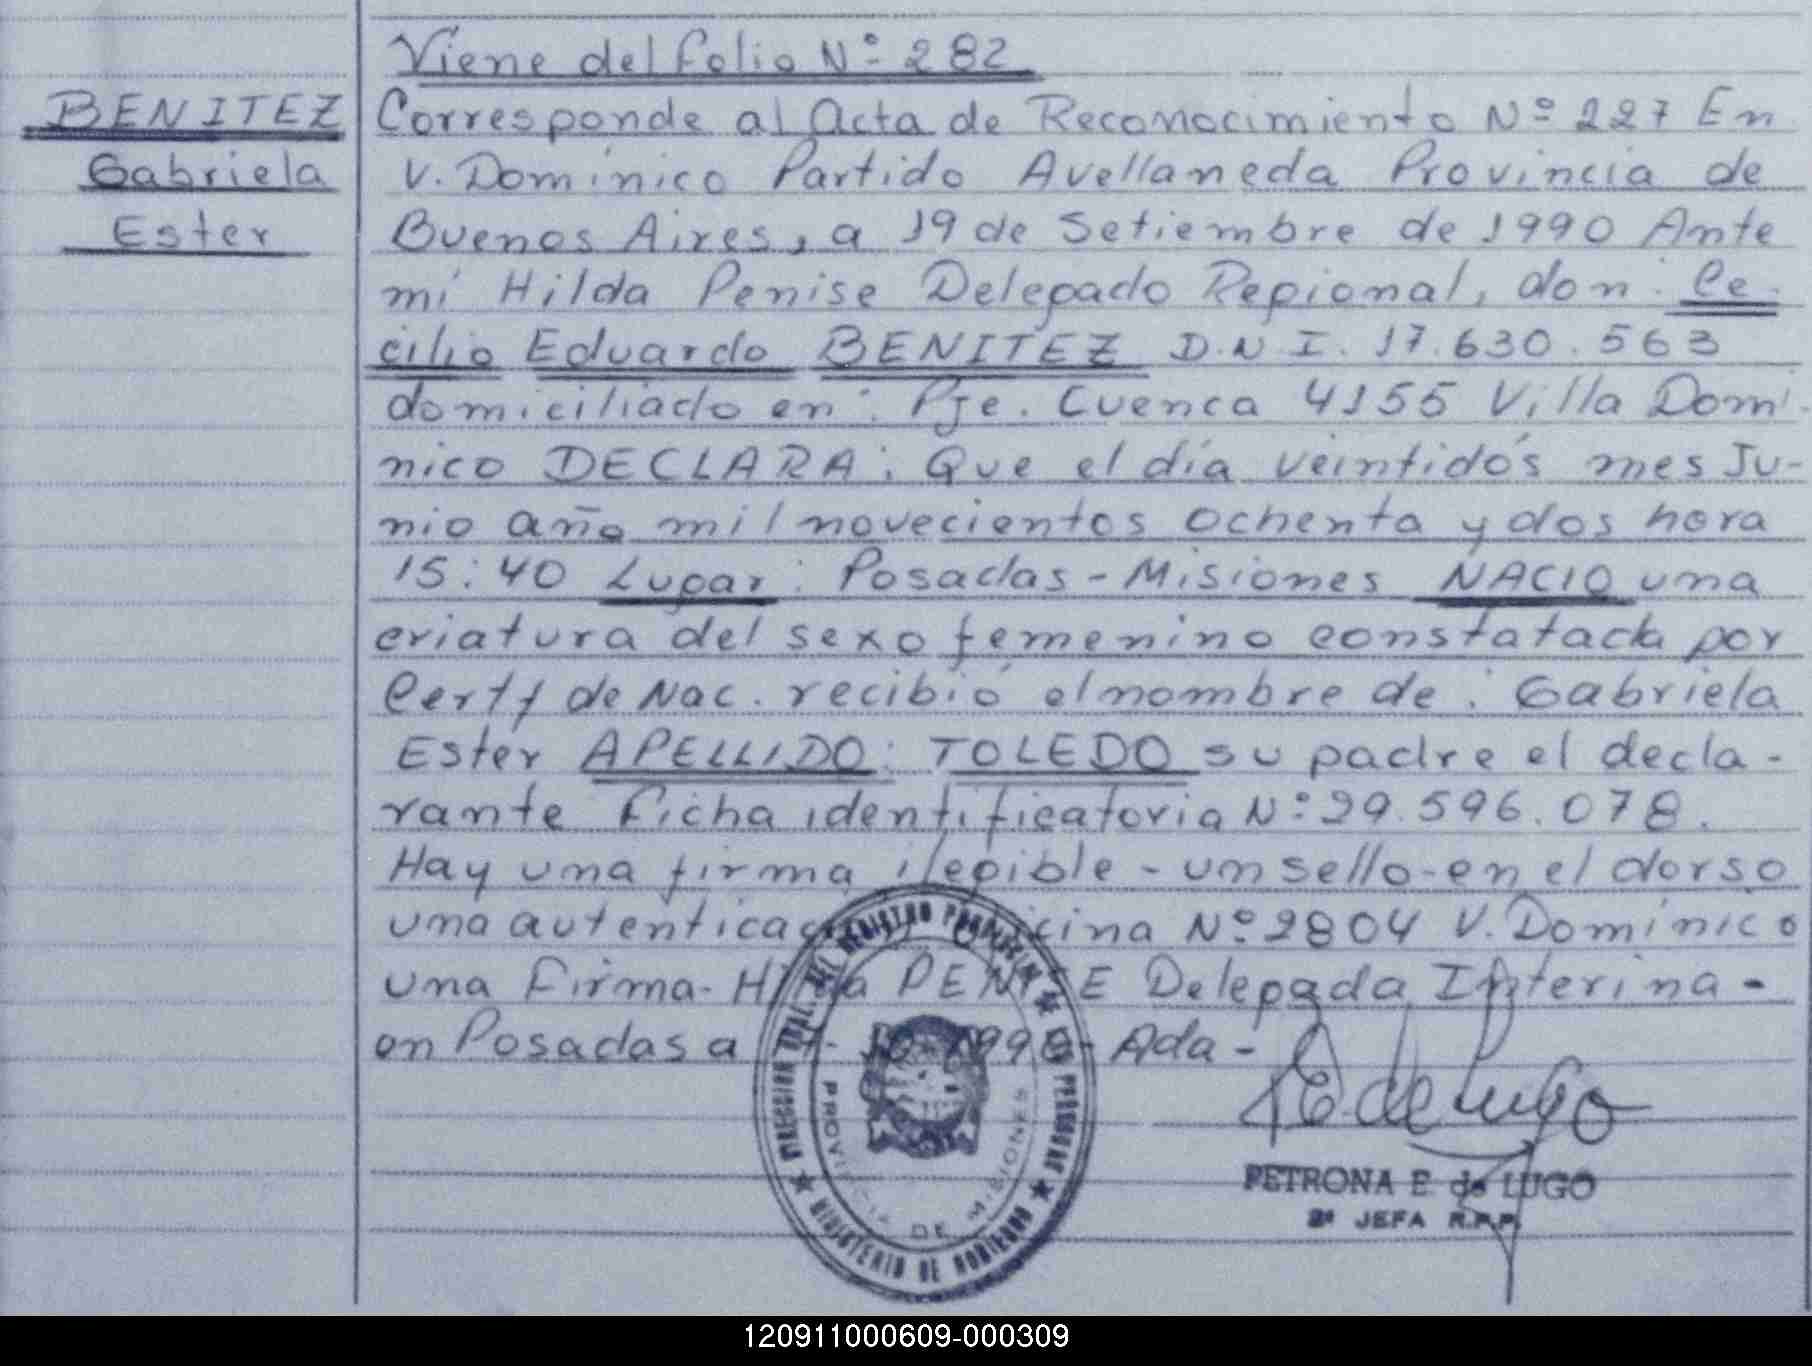 Viene del folio Nº 282
BENITEZ
Gabriela
Ester
Corresponde al Acta de Reconocimiento Nº 227 En
V. Dominico Partido Avellaneda Provincia de
Buenos Aires, a 19 de Setiembre de 1990 Ante
mí Hilda Penise Delegado Regional, don: Ce-
cilio Eduardo BENITEZ D.N.I. 17.630.563
domiciliado en: Pje. Cuenca 4155 Villa Domi-
nico DECLARA: Que el día veintidós mes Ju-
nio año mil novecientos ochenta y dos hora
15:40 Lugar: Posadas - Misiones NACIO una
criatura del sexo femenino constatada por
Certf de Nac. recibió el nombre de: Gabriela
Ester APELLIDO: TOLEDO su padre el decla-
rante Ficha identificatoria Nº 29.596.078.
Hay una firma ilegible - un sello - en el dorso
una autenticación Oficina Nº 2804 V. Dominico
una Firma - Hilda PENISE Delegada Interina -
en Posadas a 1990 - Ada -
DIRECCION GRAL. DEL REGISTRO PROVINCIAL DE LAS PERSONAS
PROVINCIA DE MISIONES
MINISTERIO DE GOBIERNO
P E de Lugo
PETRONA E de LUGO
2ª JEFA R.P.P.
120911000609-000309